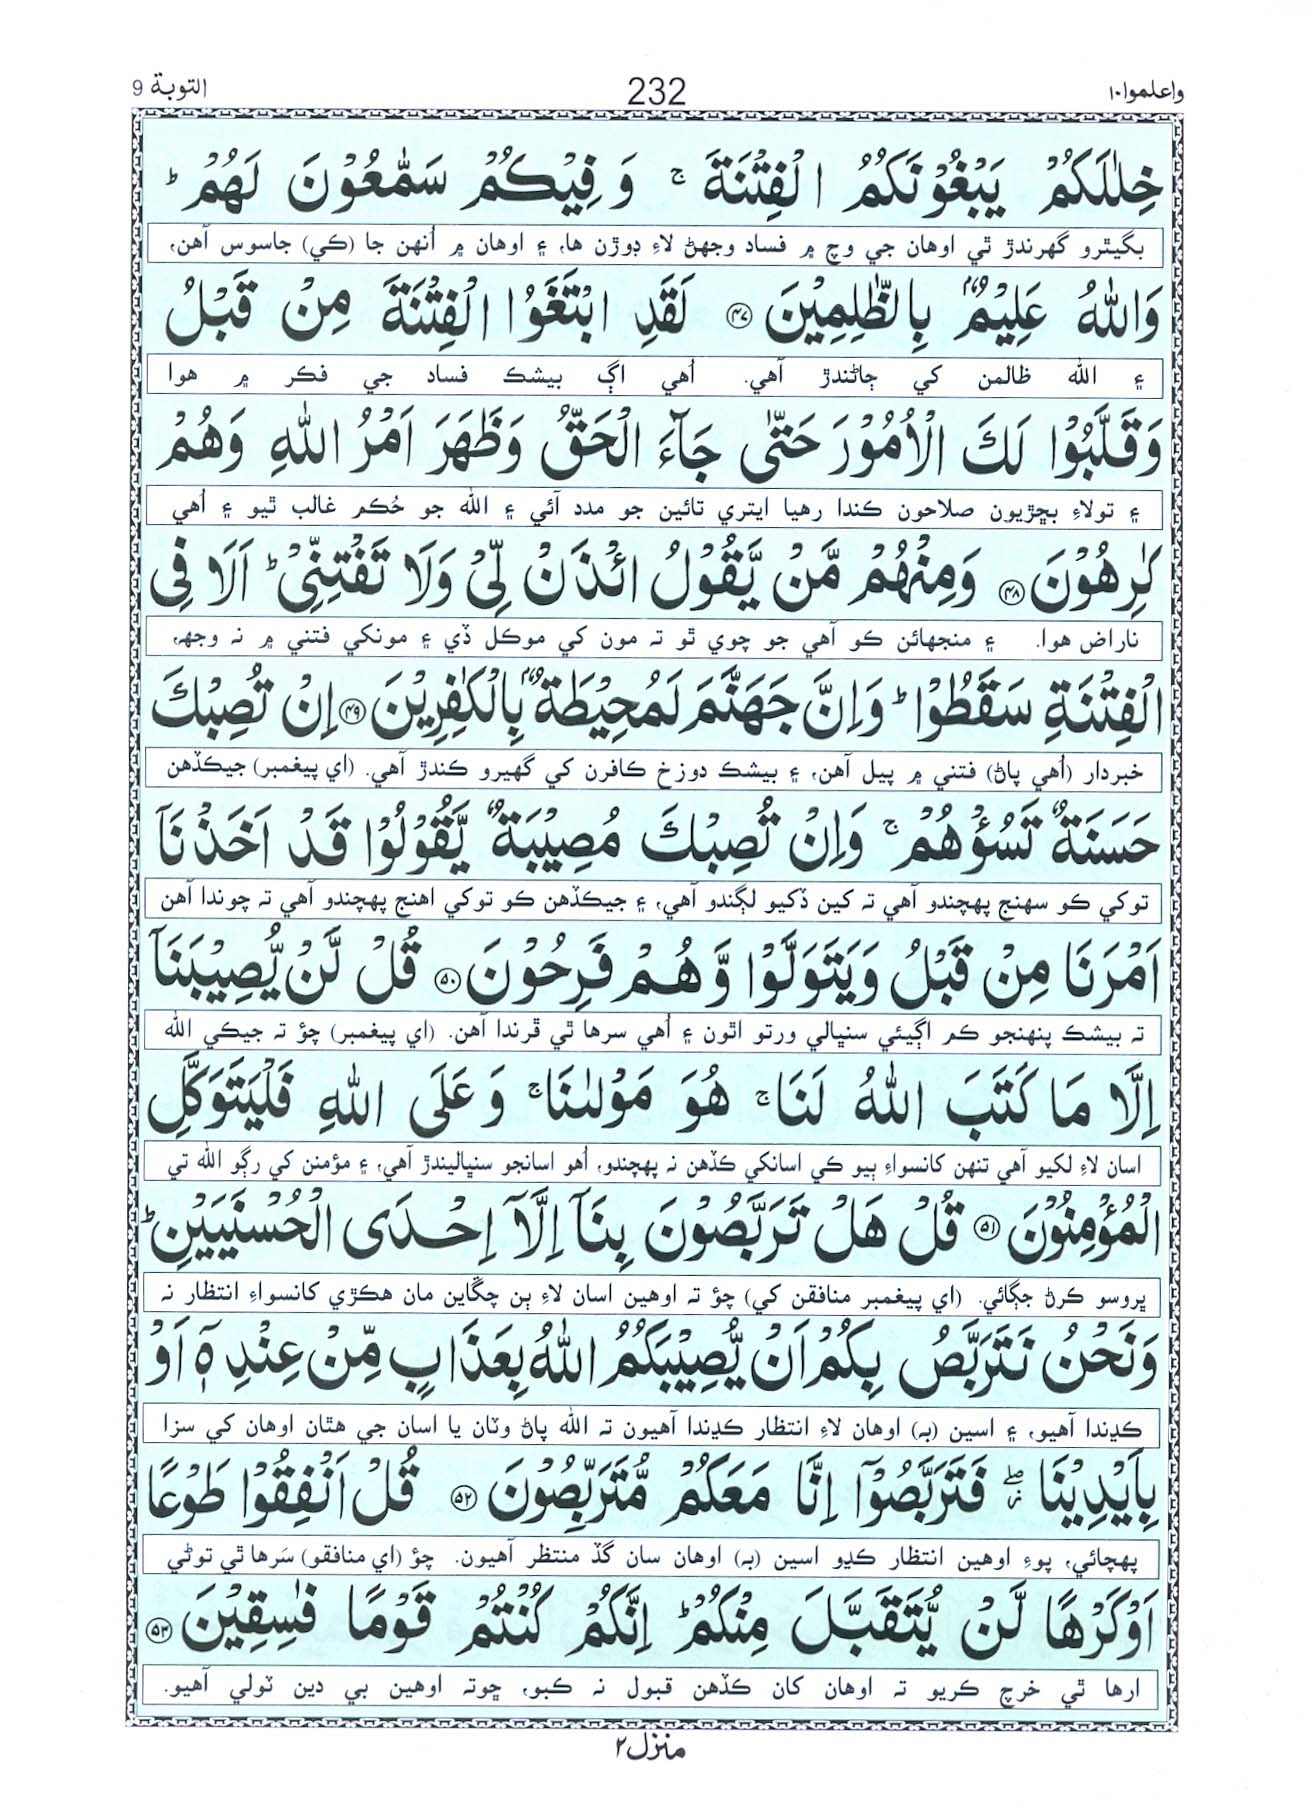 واعلموا ۱۰ 232 التوبة 9
خِلٰلَكُمْ يَبْغُوْنَكُمُ الْفِتْنَةَ ۚ وَ فِيْكُمْ سَمّٰعُوْنَ لَهُمْ ؕ
بگيٿرو گهرندڙ ٿي اوهان جي وچ ۾ فساد وجهڻ لاءِ ڊوڙن ها، ۽ اوهان ۾ اُنهن جا (ڪي) جاسوس آهن،
وَاللّٰهُ عَلِيْمٌۢ بِالظّٰلِمِيْنَ ۴۷ لَقَدِ ابْتَغَوُا الْفِتْنَةَ مِنْ قَبْلُ
۽ الله ظالمن کي ڄاڻندڙ آهي. اُهي اڳ بيشڪ فساد جي فڪر ۾ هوا
وَقَلَّبُوْا لَكَ الْاُمُوْرَ حَتّٰى جَآءَ الْحَقُّ وَظَهَرَ اَمْرُ اللّٰهِ وَهُمْ
۽ تولاءِ بڇڙيون صلاحون ڪندا رهيا ايتري تائين جو مدد آئي ۽ الله جو حُڪم غالب ٿيو ۽ اُهي
كٰرِهُوْنَ ۴۸ وَمِنْهُمْ مَّنْ يَّقُوْلُ ائْذَنْ لِّيْ وَلَا تَفْتِنِّيْ ؕ اَلَا فِى
ناراض هوا. ۽ منجهائن ڪو آهي جو چوي ٿو ته مون کي موڪل ڏي ۽ مونکي فتني ۾ نه وجهه،
الْفِتْنَةِ سَقَطُوْا ؕ وَاِنَّ جَهَنَّمَ لَمُحِيْطَةٌۢ بِالْكٰفِرِيْنَ ۴۹ اِنْ تُصِبْكَ
خبردار (اُهي پاڻ) فتني ۾ پيل آهن، ۽ بيشڪ دوزخ ڪافرن کي گهيرو ڪندڙ آهي. (اي پيغمبر) جيڪڏهن
حَسَنَةٌ تَسُؤْهُمْ ۚ وَاِنْ تُصِبْكَ مُصِيْبَةٌ يَّقُوْلُوْا قَدْ اَخَذْنَآ
توکي ڪو سهنج پهچندو آهي ته کين ڏکيو لڳندو آهي، ۽ جيڪڏهن ڪو توکي اهنج پهچندو آهي ته چوندا آهن
اَمْرَنَا مِنْ قَبْلُ وَيَتَوَلَّوْا وَّهُمْ فَرِحُوْنَ ۵۰ قُلْ لَّنْ يُّصِيْبَنَآ
ته بيشڪ پنهنجو ڪم اڳيئي سنڀالي ورتو اٿون ۽ اُهي سرها ٿي ڦرندا آهن. (اي پيغمبر) چؤ ته جيڪي الله
اِلَّا مَا كَتَبَ اللّٰهُ لَنَا ۚ هُوَ مَوْلٰىنَا ۚ وَعَلَى اللّٰهِ فَلْيَتَوَكَّلِ
اسان لاءِ لکيو آهي تنهن کانسواءِ ٻيو ڪي اسانکي ڪڏهن نه پهچندو، اُهو اسانجو سنڀاليندڙ آهي، ۽ مؤمنن کي رڳو الله تي
الْمُؤْمِنُوْنَ ۵۱ قُلْ هَلْ تَرَبَّصُوْنَ بِنَآ اِلَّآ اِحْدَى الْحُسْنَيَيْنِ ؕ
ڀروسو ڪرڻ جڳائي. (اي پيغمبر منافقن کي) چؤ ته اوهين اسان لاءِ ٻن چڱاين مان هڪڙي کانسواءِ انتظار نه
وَنَحْنُ نَتَرَبَّصُ بِكُمْ اَنْ يُّصِيْبَكُمُ اللّٰهُ بِعَذَابٍ مِّنْ عِنْدِهٖٓ اَوْ
ڪڍندا آهيو، ۽ اسين (به) اوهان لاءِ انتظار ڪڍندا آهيون ته الله پاڻ وٽان يا اسان جي هٿان اوهان کي سزا
بِاَيْدِيْنَا ۖز فَتَرَبَّصُوْٓا اِنَّا مَعَكُمْ مُّتَرَبِّصُوْنَ ۵۲ قُلْ اَنْفِقُوْا طَوْعًا
پهچائي، پوءِ اوهين انتظار ڪڍو اسين (به) اوهان سان گڏ منتظر آهيون. چؤ (اي منافقو) سَرها ٿي توڻي
اَوْ كَرْهًا لَّنْ يُّتَقَبَّلَ مِنْكُمْ ؕ اِنَّكُمْ كُنْتُمْ قَوْمًا فٰسِقِيْنَ ۵۳
ارها ٿي خرچ ڪريو ته اوهان کان ڪڏهن قبول نه ڪبو، ڇوته اوهين بي دين ٽولي آهيو.
منزل ۲